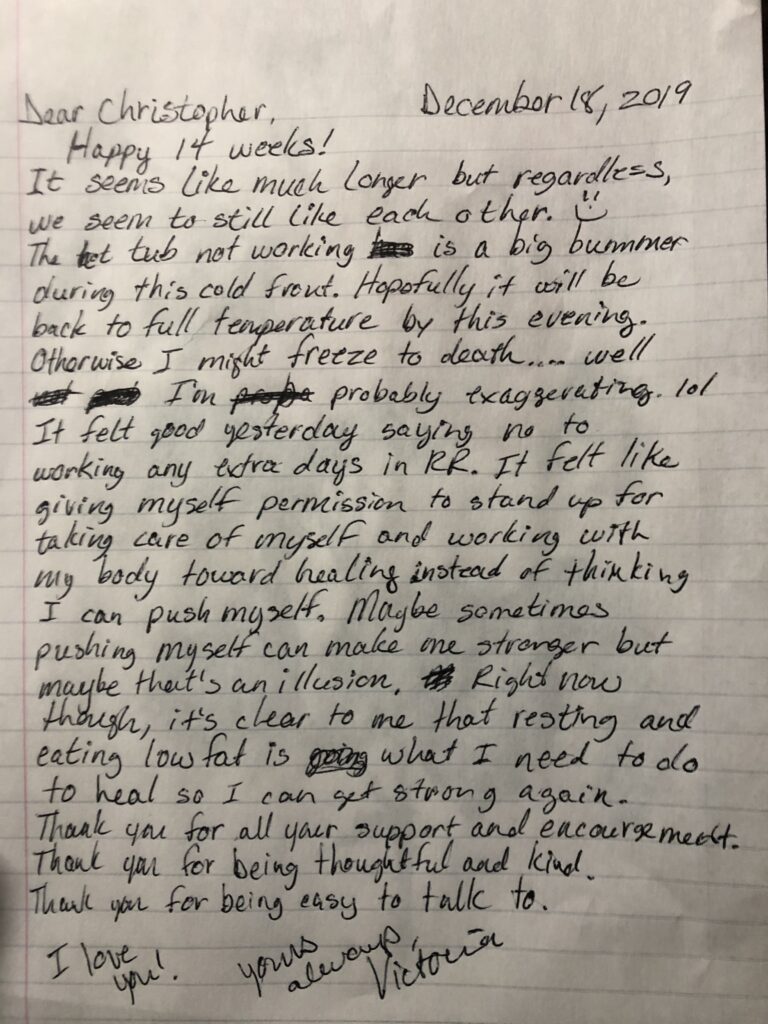 December 18, 2019
Dear Christopher,
Happy 14 weeks!
It seems like much longer but regardless,
we seem to still like each other. :)
The hot tub not working is a big bummer
during this cold front. Hopefully it will be
back to full temperature by this evening.
Otherwise I might freeze to death.... well
I'm probably exaggerating. lol
It felt good yesterday saying no to
working any extra days in RR. It felt like
giving myself permission to stand up for
taking care of myself and working with
my body toward healing instead of thinking
I can push myself. Maybe sometimes
pushing myself can make me stronger but
maybe that's an illusion. Right now
though, it's clear to me that resting and
eating low fat is what I need to do
to heal so I can get strong again.
Thank you for all your support and encouragement.
Thank you for being thoughtful and kind.
Thank you for being easy to talk to.
I love you!
yours always,
Victoria